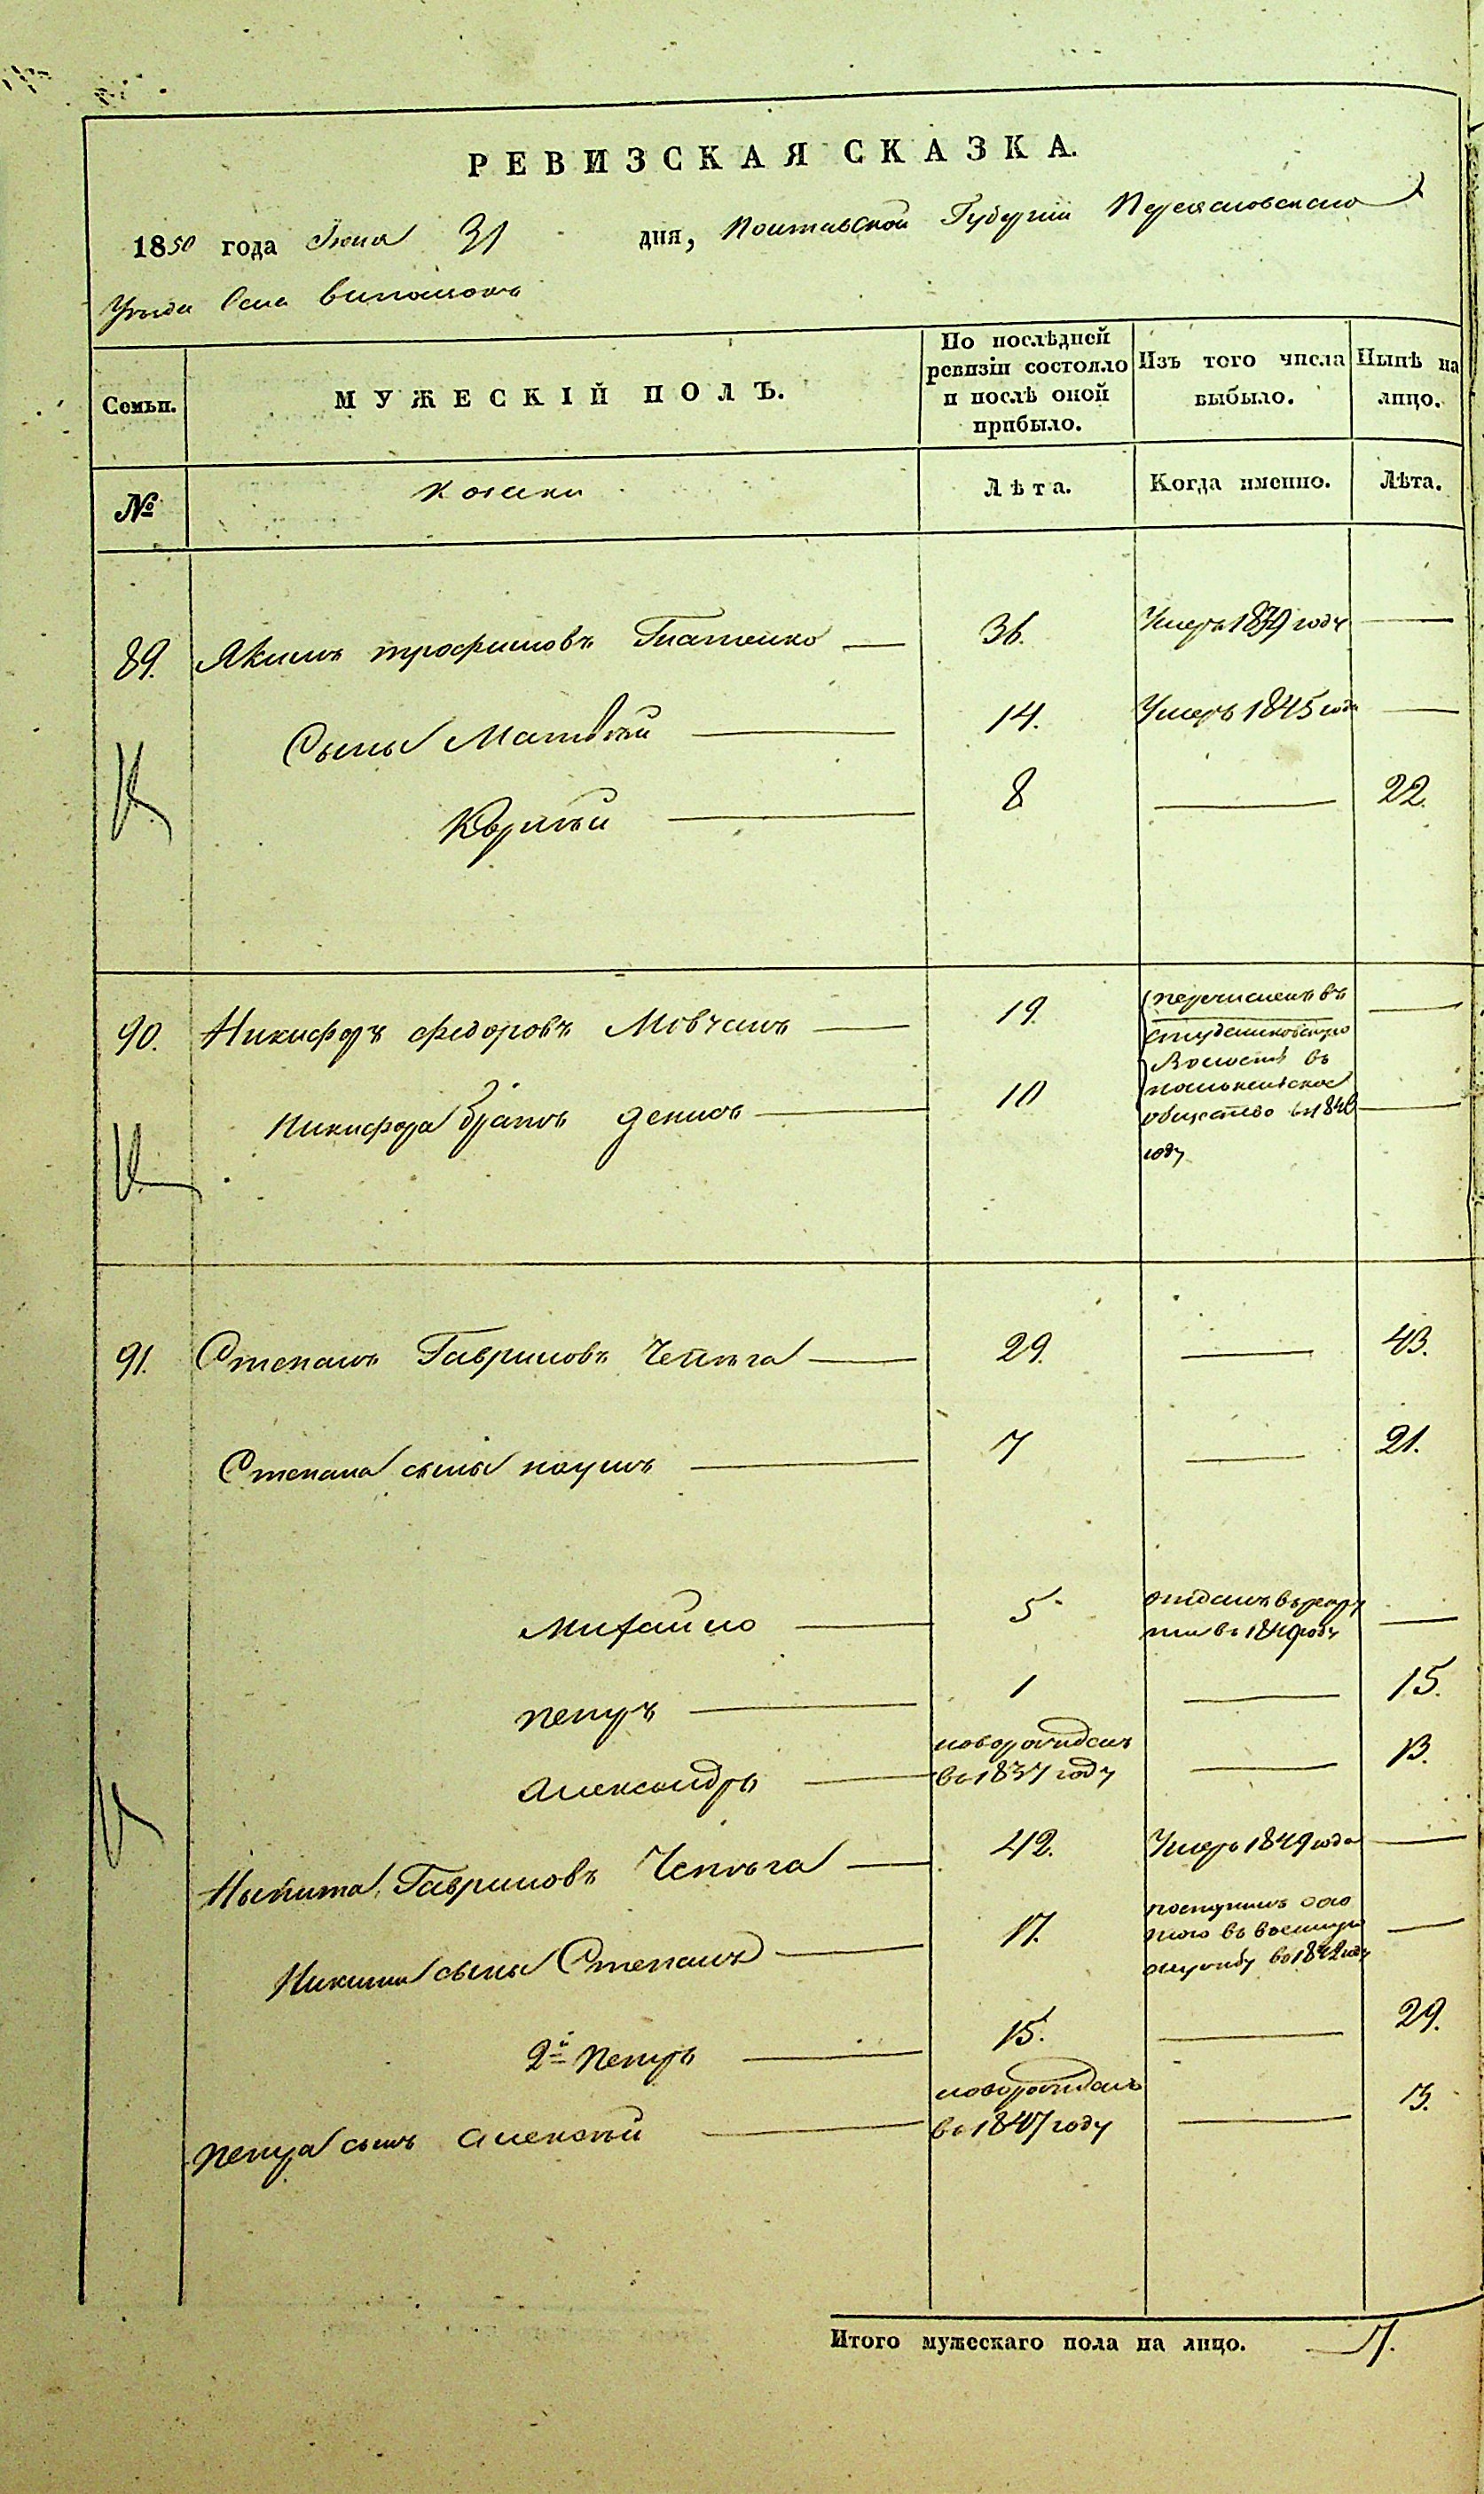 РЕВИЗСКАЯ СКАЗКА.
1850 года Июня 31 дня, Полтавской Губерніи Переясловского
Уезда Села
Семьи. МУЖЕСКІЙ ПОЛЪ. По послѣдней ревизіи состояло и послѣ оной прибыло. Изъ того числа выбыло. Нынѣ на лицо.
№ Козаки Лѣта. Когда именно. Лѣта.
89. Якимъ трофимовъ Гнатенко 36. Умеръ 1839 году
Сыны Матвѣй 14. Умеръ 1845 года
Кѵрилъй 8 22.
90. Никифоръ федоровъ Мовчанъ 19. перечисленъ въ
студениковскую
Волость въ
Никифора братъ денисъ 10
общество въ 1846
году
91. Степанъ Гавриловъ Чепѣга 29. 43.
Степана сыны наумъ 7 21.
Михайло 5 отданъ въ рекру
ты въ 1849 году
петръ 1 15.
Александръ новорожденъ
въ 1837 году 13.
Никита Гавриловъ Чепѣга 42. Умеръ 1849 года
Никиты сыны Степанъ 17. поступилъ охо
тою въ военную
службу въ 1842 году
2й петръ 15. 29.
петра сынъ Алексѣй новорожденъ
въ 1847 году 3.
Итого мужескаго пола на лицо. 7.